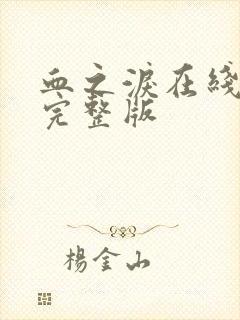 血之淚在綫
完整版
楊金山